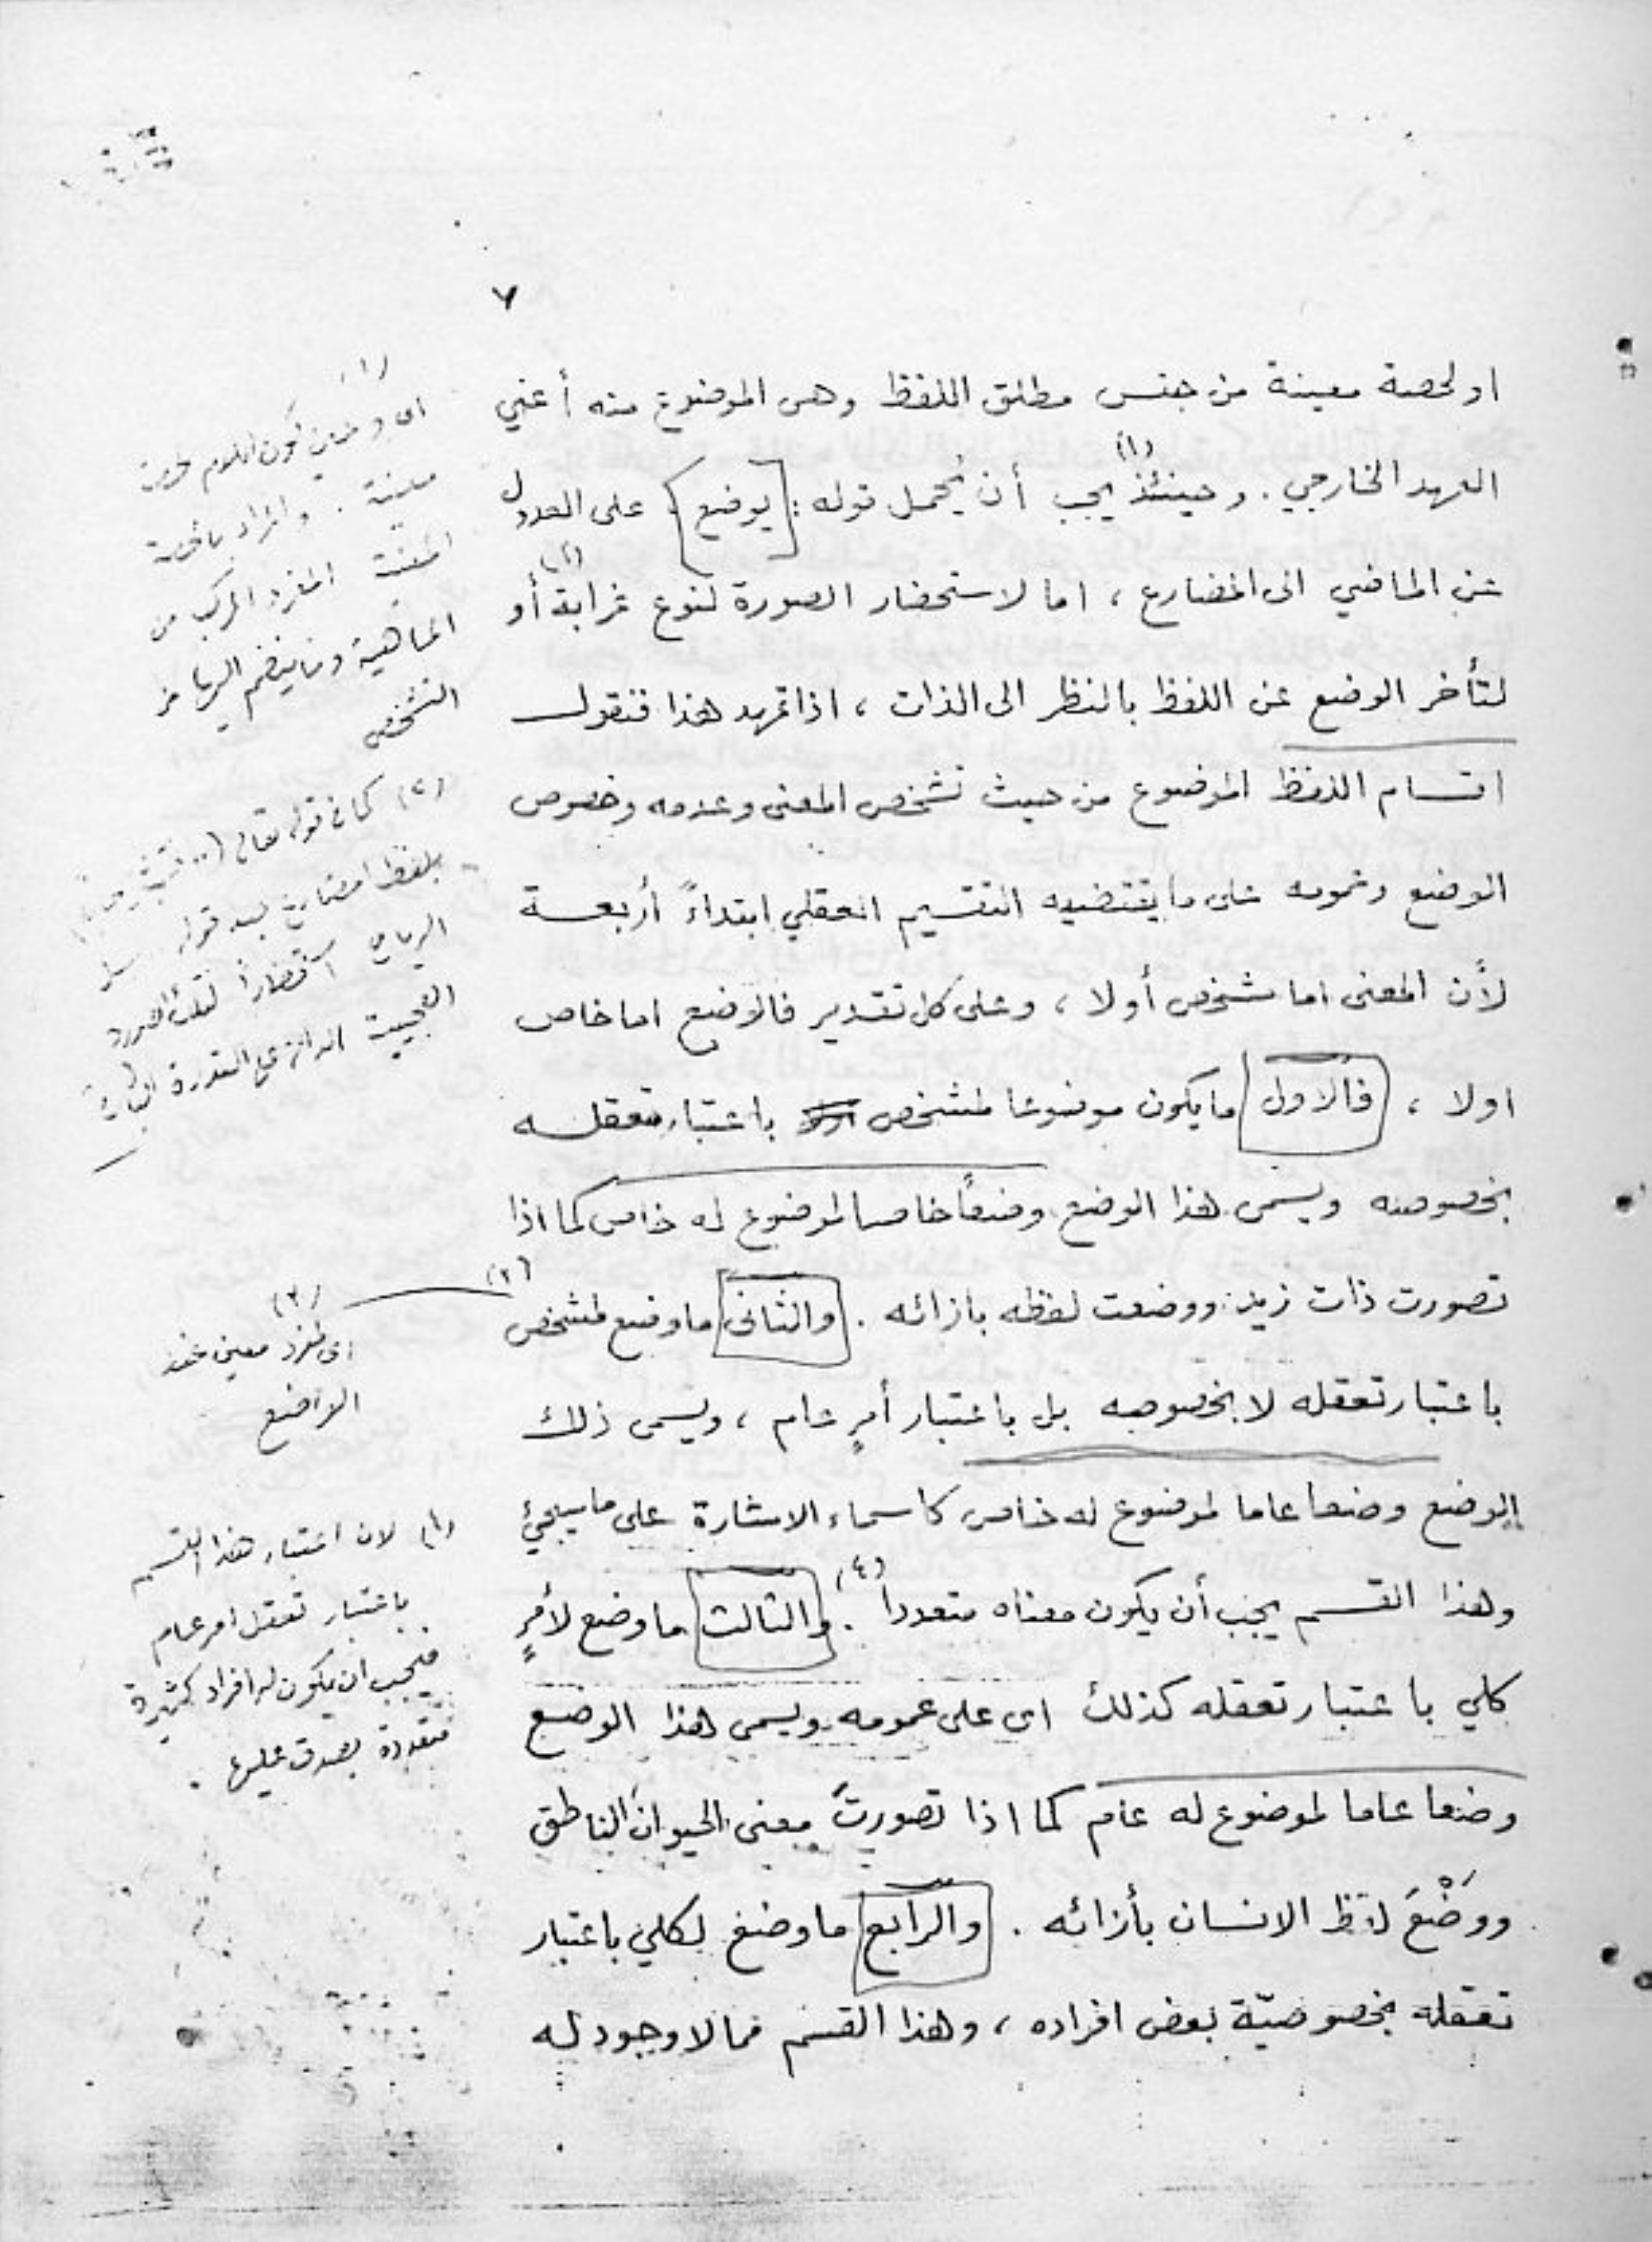 ٧
او لحصة معينة من جنس مطلق اللفظ وهى الموضوع منه أعني
العهد الخارجي . وحينئذ (١) يجب أن يُحمل قوله : [يوضع] على العدول
عن الماضي الى المضارع ، اما لاستحضار الصورة لنوع غرابة (٢) أو
لتأخر الوضع عن اللفظ بالنظر الى الذات ، اذا تمهد هذا فنقول
اقسام اللفظ الموضوع من حيث تشخص المعنى وعدمه وخصوص
الوضع وعمومه على ما يقتضيه التقسيم العقلي ابتداءً أربعة
لأن المعنى اما مشخص أولا ، وعلى كل تقدير فالوضع اما خاص
اولا ، [فالاول] ما يكون موضوعا لمشخص باعتبار تعقله
بخصوصه ويسمى هذا الوضع وضعاً خاصا لموضوع له خاص كما اذا
تصورت ذات زيد ووضعت لفظه بازائه . [والثانى] ما وضع لمشخص (٣)
باعتبار تعقله لا بخصوصه بل باعتبار أمرٍ عام ، ويسمى ذلك
الوضع وضعا عاما لموضوع له خاص كاسماء الاشارة على ما سيجئ
وهذا القسم يجب أن يكون معناه متعددا (٤) . [والثالث] ما وضع لأمرٍ
كلي باعتبار تعقله كذلك اى على عمومه ويسمى هذا الوضع
وضعا عاما لموضوع له عام كما اذا تصورتَ معنى الحيوان الناطق
ووَضْعَ لفظ الانسان بأزائه . [والرابع] ما وضع لكلي باعتبار
تعقله بخصوصيّة بعض افراده ، وهذا القسم مما لا وجود له
(١)
اى وحين كون اللام لحصة
معينة . والمراد بالحصة
المعينة المفرد المركب من
الماهية وما ينضم اليها من
التشخص
(٢) كما في قوله تعالى (..فتثير سحابا)
بلفظ المضارع بعد قوله
الرياح لتلك الصورة
العجيبة الدالة على القدرة
(٣)
اى لفرد معين عند
الواضع
(٤) لان اعتبار هذا القسم
باعتبار تعقل امر عام
فيجب ان يكون له افراد كثيرة
متعددة يصدق عليها .